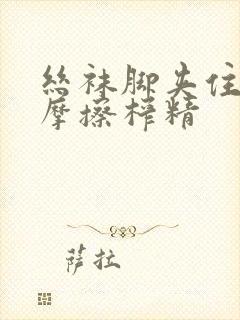 丝袜脚夹住
摩擦榨精
萨拉